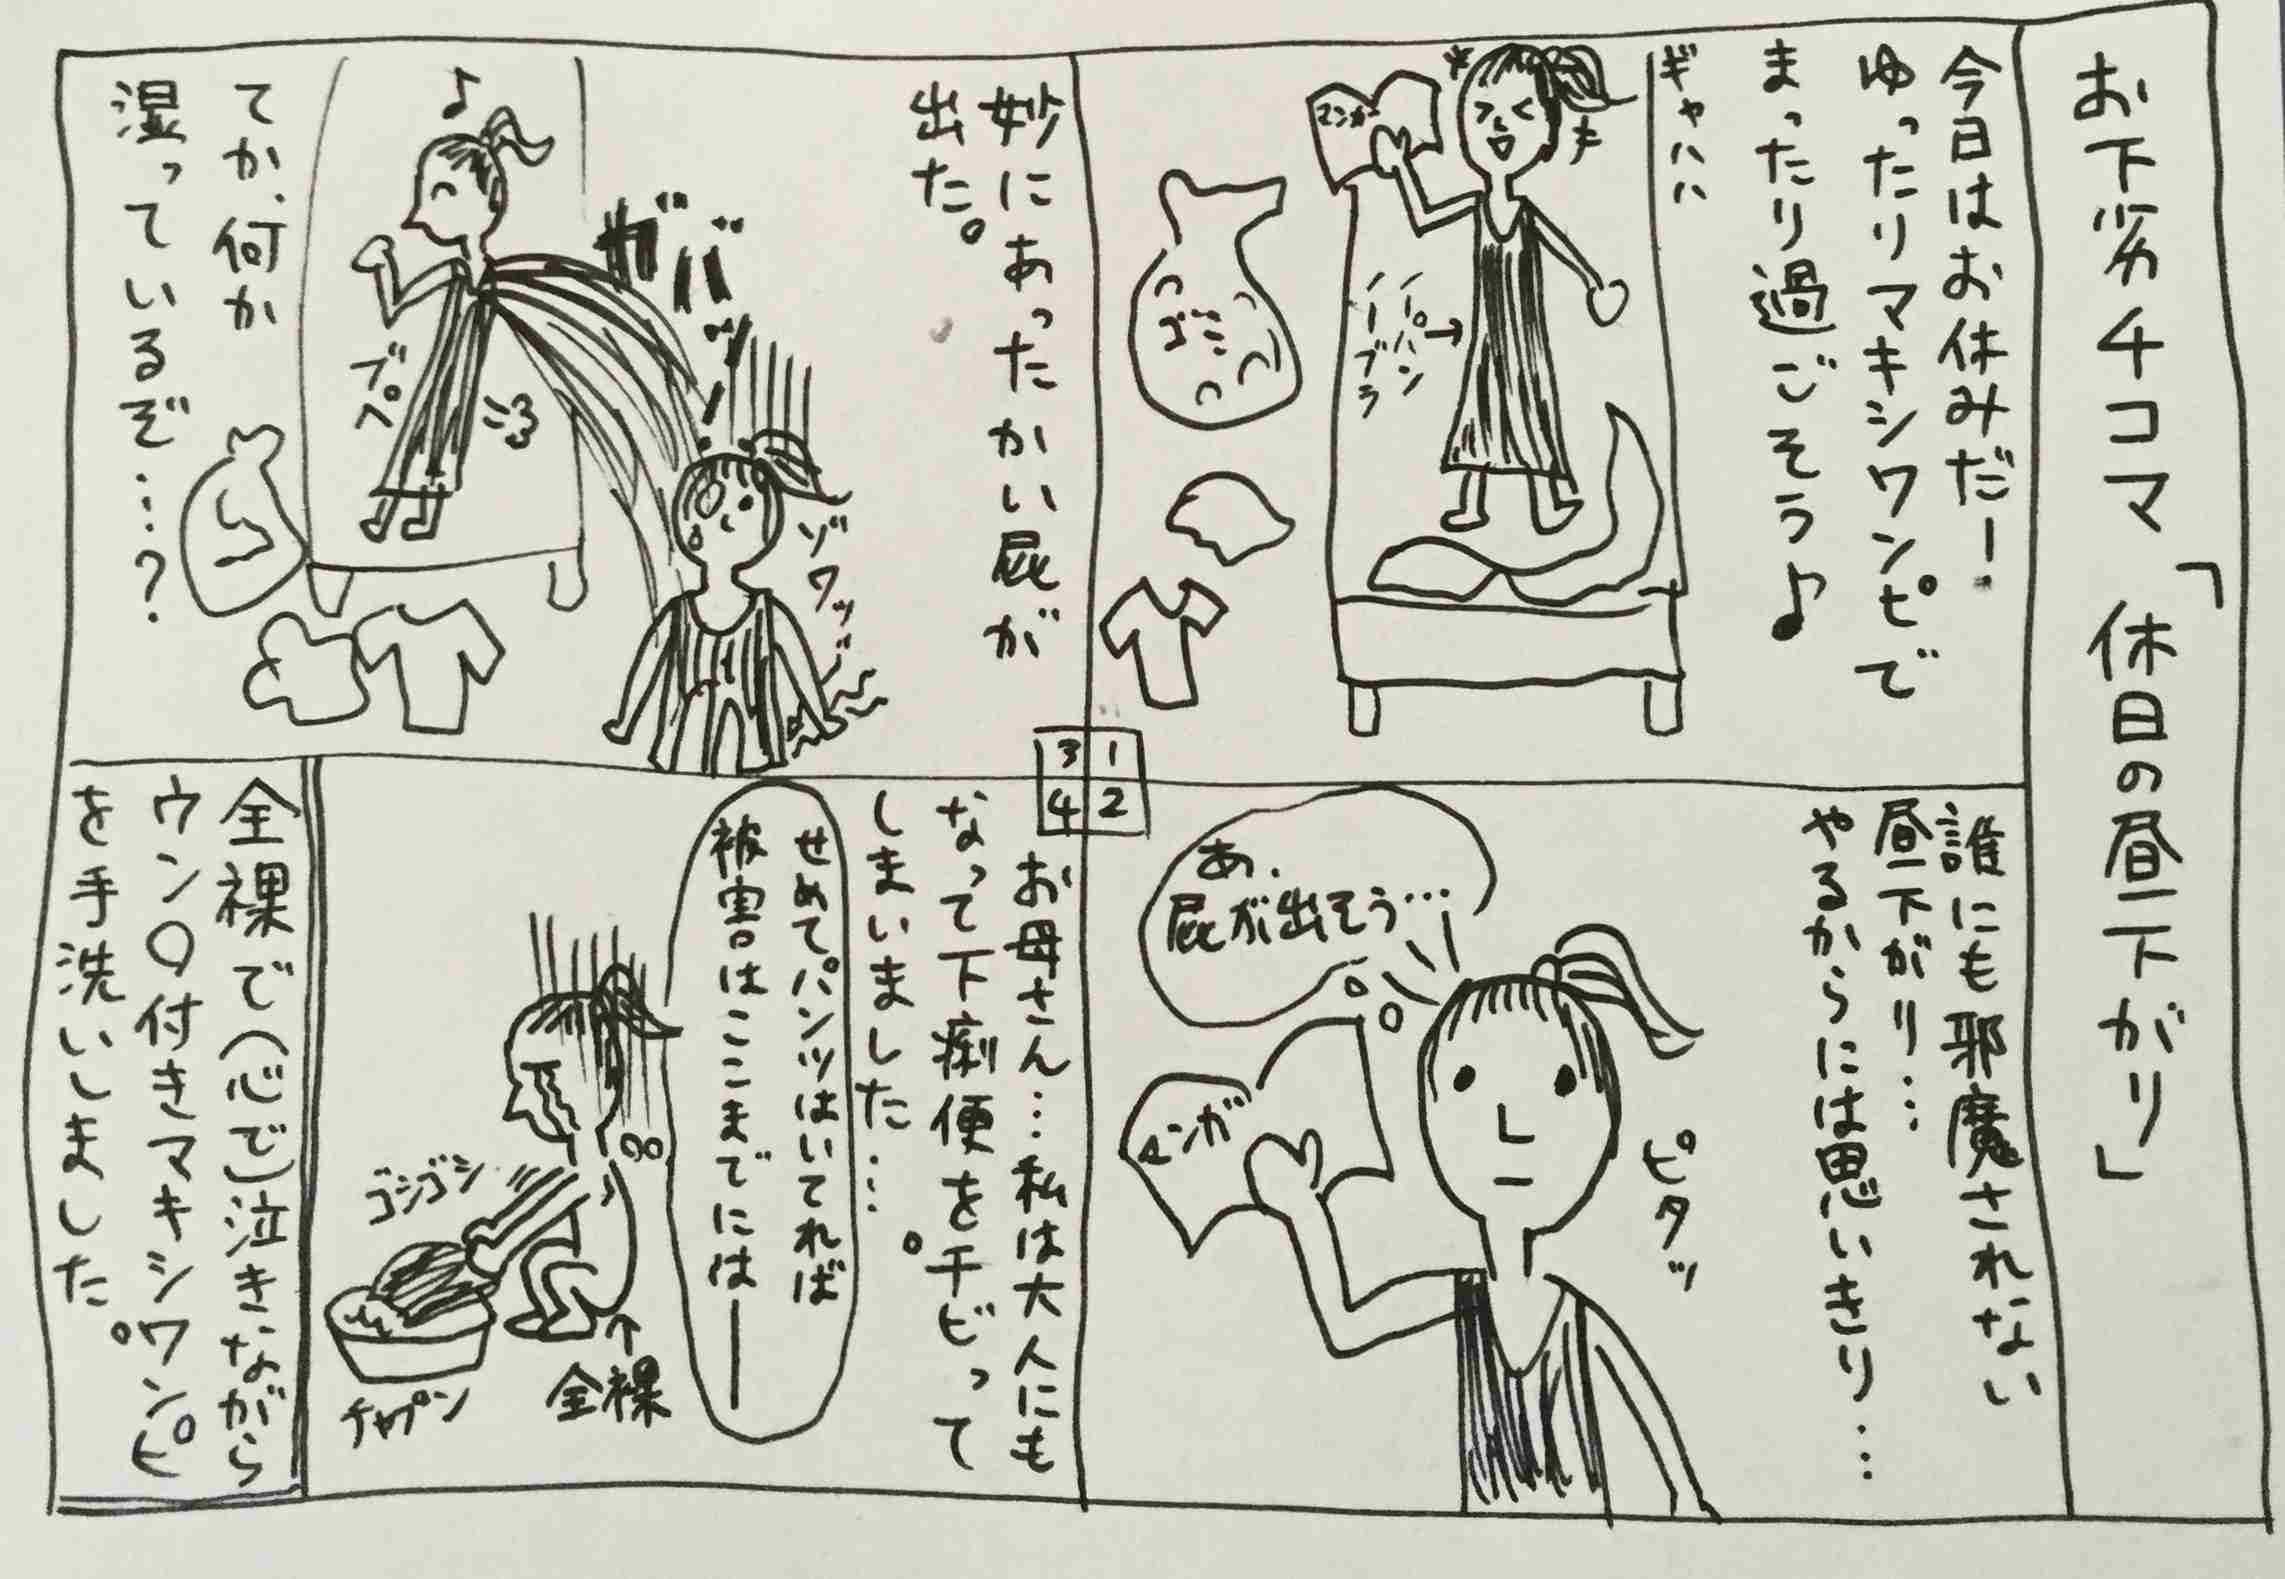 お下劣4コマ「休日の昼下がり」
今日はお休みだー!
ゆったりマキシワンピで
まったり過ごそう♪
ギャハハ
マンガ
ノーパン
ノーブラ
→
ゴミ
1
2
3
4
誰にも邪魔されない
昼下がり…
やるからには思いきり…
あ、
屁が出そう…
ピタッ
マンガ
妙にあったかい屁が
出た。
ガバッ
ゾワッ
♪
プペ
てか、何か
湿っているぞ…?
お母さん…私は大人にも
なって下痢便をチビって
しまいました…。
せめてパンツはいてれば
被害はここまでには―
ゴシゴシ
チャプン
↑
全裸
全裸で(心で)泣きながら
ウン〇付きマキシワンピ
を手洗いしました。